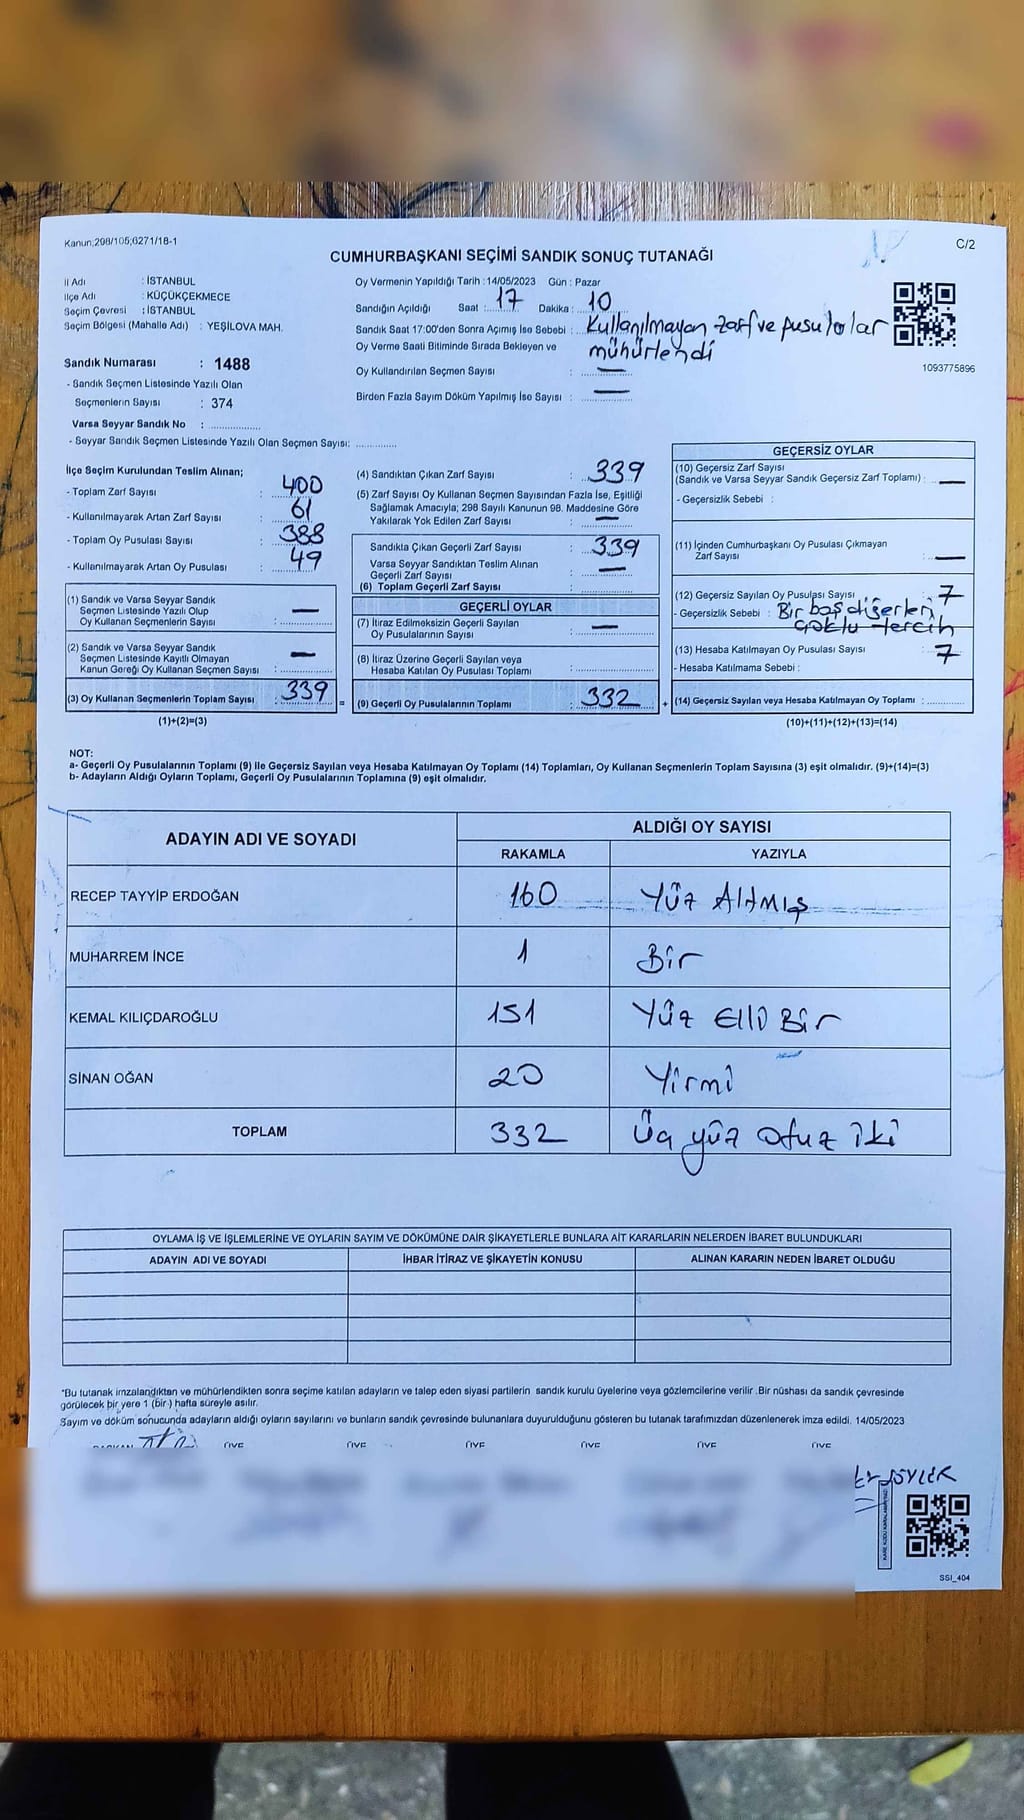 Kanun;298/105;6271/18-1
C/2
CUMHURBAŞKANI SEÇİMİ SANDIK SONUÇ TUTANAĞI
İl Adı : İSTANBUL
İlçe Adı : KÜÇÜKÇEKMECE
Seçim Çevresi : İSTANBUL
Seçim Bölgesi (Mahalle Adı) : YEŞİLOVA MAH.
Sandık Numarası : 1488
- Sandık Seçmen Listesinde Yazılı Olan
Seçmenlerin Sayısı : 374
Varsa Seyyar Sandık No : ..............
- Seyyar Sandık Seçmen Listesinde Yazılı Olan Seçmen Sayısı: ............
Oy Vermenin Yapıldığı Tarih :14/05/2023 Gün : Pazar
Sandığın Açıldığı Saat : 17 Dakika : 10
Sandık Saat 17:00'den Sonra Açımış İse Sebebi : Kullanılmayan zarf ve pusulalar
mühürlendi
Oy Verme Saati Bitiminde Sırada Bekleyen ve
Oy Kullandırılan Seçmen Sayısı : —
Birden Fazla Sayım Döküm Yapılmış İse Sayısı : —
1093775896
İlçe Seçim Kurulundan Teslim Alınan;
- Toplam Zarf Sayısı : 400
- Kullanılmayarak Artan Zarf Sayısı : 61
- Toplam Oy Pusulası Sayısı : 388
- Kullanılmayarak Artan Oy Pusulası : 49
(1) Sandık ve Varsa Seyyar Sandık
Seçmen Listesinde Yazılı Olup
Oy Kullanan Seçmenlerin Sayısı : —
(2) Sandık ve Varsa Seyyar Sandık
Seçmen Listesinde Kayıtlı Olmayan
Kanun Gereği Oy Kullanan Seçmen Sayısı : —
(3) Oy Kullanan Seçmenlerin Toplam Sayısı : 339
(1)+(2)=(3)
(4) Sandıktan Çıkan Zarf Sayısı : 339
(5) Zarf Sayısı Oy Kullanan Seçmen Sayısından Fazla İse, Eşitliği
Sağlamak Amacıyla; 298 Sayılı Kanunun 98. Maddesine Göre
Yakılarak Yok Edilen Zarf Sayısı : —
Sandıkta Çıkan Geçerli Zarf Sayısı : 339
Varsa Seyyar Sandıktan Teslim Alınan
Geçerli Zarf Sayısı : —
(6) Toplam Geçerli Zarf Sayısı :
GEÇERLİ OYLAR
(7) İtiraz Edilmeksizin Geçerli Sayılan
Oy Pusulalarının Sayısı : —
(8) İtiraz Üzerine Geçerli Sayılan veya
Hesaba Katılan Oy Pusulası Toplamı :
= (9) Geçerli Oy Pusulalarının Toplamı : 332 +
GEÇERSİZ OYLAR
(10) Geçersiz Zarf Sayısı
(Sandık ve Varsa Seyyar Sandık Geçersiz Zarf Toplamı) : —
- Geçersizlik Sebebi :
(11) İçinden Cumhurbaşkanı Oy Pusulası Çıkmayan
Zarf Sayısı : —
(12) Geçersiz Sayılan Oy Pusulası Sayısı : 7
- Geçersizlik Sebebi : Bir boş diğerleri
çoklu tercih
(13) Hesaba Katılmayan Oy Pusulası Sayısı : 7
- Hesaba Katılmama Sebebi :
(14) Geçersiz Sayılan veya Hesaba Katılmayan Oy Toplamı : ............
(10)+(11)+(12)+(13)=(14)
NOT:
a- Geçerli Oy Pusulalarının Toplamı (9) ile Geçersiz Sayılan veya Hesaba Katılmayan Oy Toplamı (14) Toplamları, Oy Kullanan Seçmenlerin Toplam Sayısına (3) eşit olmalıdır. (9)+(14)=(3)
b- Adayların Aldığı Oyların Toplamı, Geçerli Oy Pusulalarının Toplamına (9) eşit olmalıdır.
ADAYIN ADI VE SOYADI
ALDIĞI OY SAYISI
RAKAMLA YAZIYLA
RECEP TAYYİP ERDOĞAN 160 Yüz Altmış
MUHARREM İNCE 1 Bir
KEMAL KILIÇDAROĞLU 151 Yüz Elli Bir
SİNAN OĞAN 20 Yirmi
TOPLAM 332 Üç yüz otuz iki
OYLAMA İŞ VE İŞLEMLERİNE VE OYLARIN SAYIM VE DÖKÜMÜNE DAİR ŞİKAYETLERLE BUNLARA AİT KARARLARIN NELERDEN İBARET BULUNDUKLARI
ADAYIN ADI VE SOYADI İHBAR İTİRAZ VE ŞİKAYETİN KONUSU ALINAN KARARIN NEDEN İBARET OLDUĞU
*Bu tutanak imzalandıktan ve mühürlendikten sonra seçime katılan adayların ve talep eden siyasi partilerin sandık kurulu üyelerine veya gözlemcilerine verilir .Bir nüshası da sandık çevresinde
görülecek bir yere 1 (bir ) hafta süreyle asılır.
Sayım ve döküm sonucunda adayların aldığı oyların sayılarını ve bunların sandık çevresinde bulunanlara duyurulduğunu gösteren bu tutanak tarafımızdan düzenlenerek imza edildi. 14/05/2023
BAŞKAN ÜYE ÜYE ÜYE ÜYE ÜYE ÜYE
SSI_404